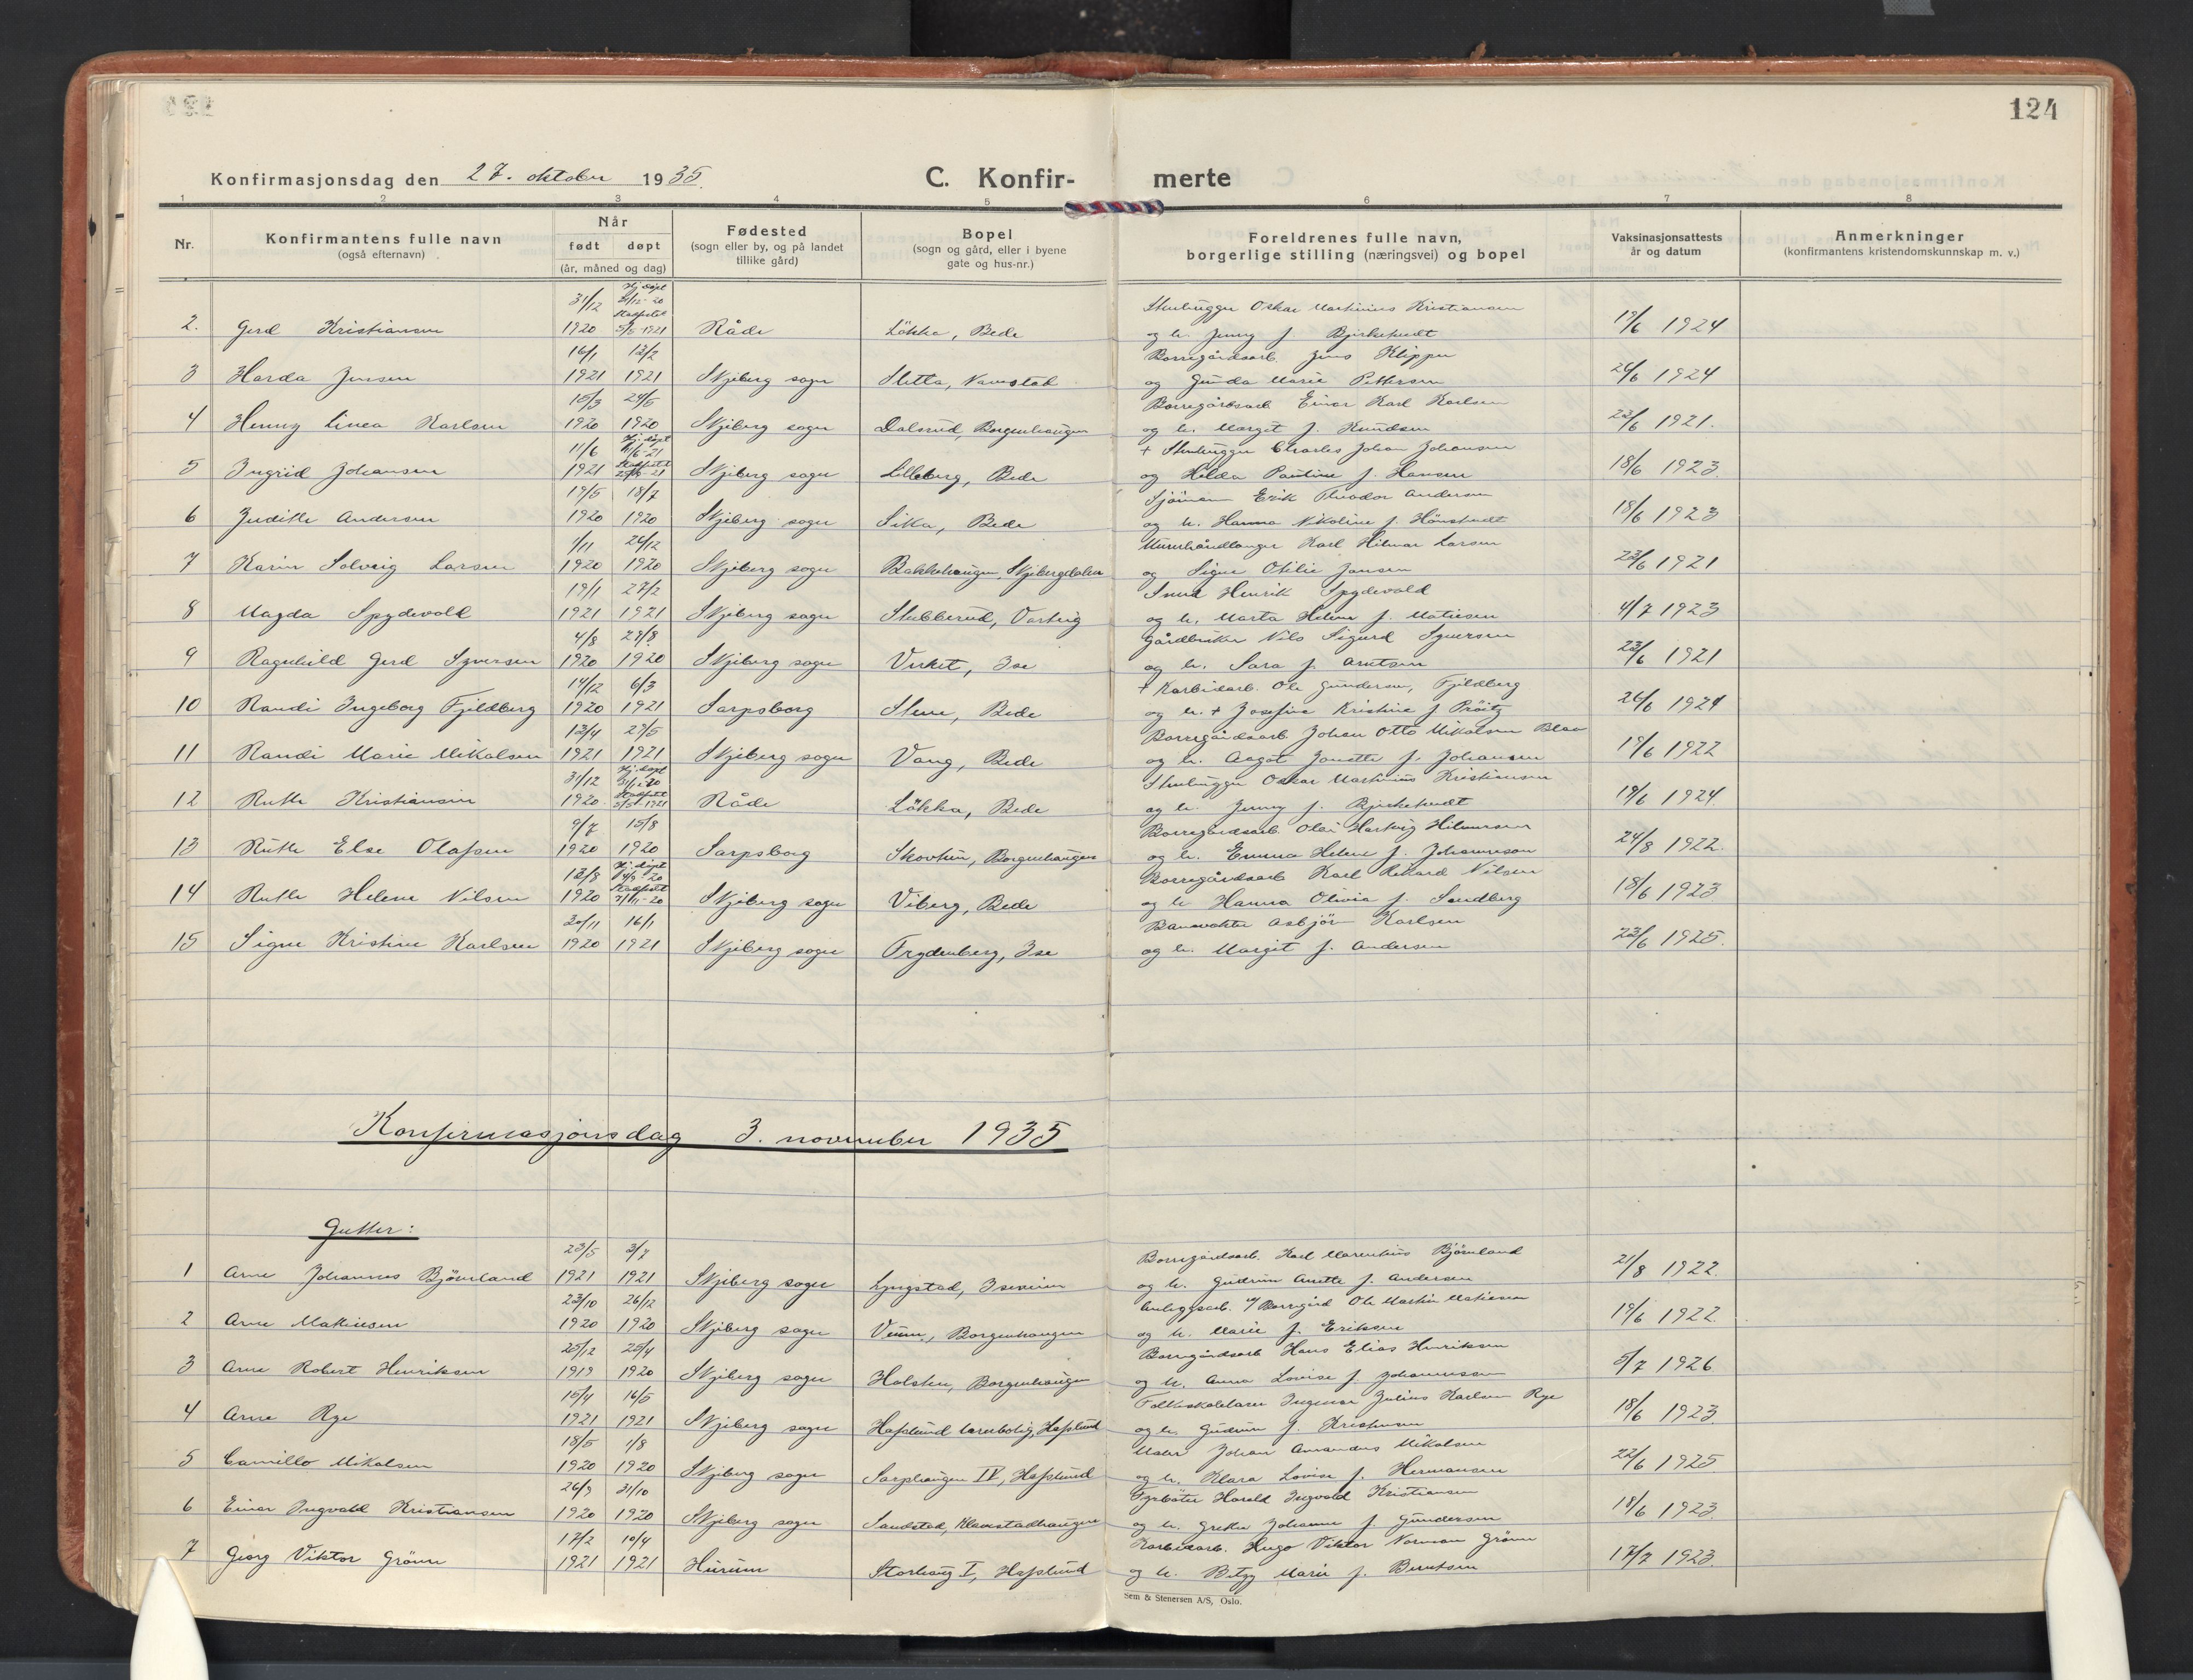 124
Konfirmasjonsdag den 27. oktober 1935.
C. Konfir- merte
1 2 3 4 5 6 7 8
Nr.
Konfirmantens fulle navn
(også efternavn)
Når
født døpt
(år, måned og dag)
Fødested
(sogn eller by, og på landet
tillike gård)
Bopel
(sogn og gård, eller i byene
gate og hus-nr.)
Foreldrenes fulle navn,
borgerlige stilling (næringsvei) og bopel
Vaksinasjonsattests
år og datum
Anmerkninger
(konfirmantens kristendomskunnskap m. v.)
31/12 Hj. døpt 31/12-20 Stenhugger Oskar Martinius Kristiansen
2. Gerd Kristiansen 1920 Stadfestet 5/5-1921 Råde Løkka, Bede og h. Jenny f. Bjirketvedt 19/6 1924
16/1 13/2 Borregårdsarb. Jens Klipper
3 Harda Jensen 1921 1921 Skjeberg sogn Sletta, Navestad og Gunda Marie Pettersen 24/6 1924
15/3 24/5 Borregårdsarb. Einar Karl Karlsen
4 Henny Linea Karlsen 1920 1920 Skjeberg sogn Dalsrud, Borgenhaugen og h. Margit f. Knudsen 23/6 1921.
11/6 Hj. døpt 11/6-21 + Stenhugger Charles Johan Johansen
5 Ingrid Johansen 1921 Stadfestet Skjeberg sogn Lilleborg, Bede og Hilda Pauline f. Hansen 18/6 1923.
19/5 18/7 Sjømann Erik Theodor Andersen
6 Judith Andersen 1920 1920 Skjeberg sogn Sika, Bede og h. Hanna Nikoline f. 18/6 1923
1/11 26/12 Murerhåndlanger Karl Hilmar Larsen
7 Karin Solveig Larsen 1920 1920 Skjeberg sogn Bakkehaugen, Skjebergdalen og Signe Otilie Jansen 23/6 1921
19/1 27/2 Smed Henrik Spydevold
8 Magda Spydevold 1921 1921 Skjeberg sogn Stubberud, Varteig og h. Marta Helene f. Matiesen 4/7 1923
4/8 29/8. Gårdbruker Nils Sigurd Syversen
9 Ragnhild Gerd Syversen 1920 1920 Skjeberg sogn Virket, Ise og h. Sara f. Arntsen 23/6 1921
14/12 6/3 + Karbidarb. Ole Gundersen, Fjeldberg
10 Randi Ingeborg Fjeldberg 1920 1921 Sarpsborg Stene, Bede og h. + Josefine Kristine f. Prøitz 26/6 1924
13/4 29/5 Borregårdsarb. Johan Otto Mikalsen Blan
11 Randi Marie Mikalsen 1921 1921 Skjeberg sogn Vang, Bede og h. Aagot Janette f. Johansen 19/6 1922
31/12 Hj. døpt 31/12-20 Stenhugger Oskar Martinius Kristiansen
12 Ruth Kristiansen 1920. Stadfestet 5/5-1921 Råde Løkka, Bede og h. Jenny f. Bjirketvedt 19/6 1924.
9/7 15/8 Borregårdsarb. Olai Hartvig Hilmarsen
13 Ruth Else Olafsen 1920 1920 Sarpsborg Skovheim, Borgenhaugen og h. Emma Helene f. Johannesen 24/8 1922.
13/8 Hj. døpt Borregårdsarb. Karl Rikard Nilsen
14 Ruth Helene Nilsen 1920 Stadfestet Skjeberg sogn Viberg, Bede og h. Hanna Olivia f. Sandberg 18/6 1923
30/11 16/1 Banevokter Asbjør Karlsen
15 Signe Kristine Karlsen 1920 1921 Skjeberg sogn Frydenberg, Ise og h. Margit f. Andersen 23/6 1925.
Konfirmasjonsdag 3. november 1935
Gutter:
23/5 3/7 Borregårdsarb. Karl Marentius Bjørnland
1 Arne Johannes Bjørnland 1921 1921 Skjeberg sogn Lyngstad, Iseveien og h. Gudrun Anette f. Andersen 21/8 1922.
23/10 26/12 Anleggsarb. v/ Borregård Ole Martin Matiesen
2 Arne Mathiesen 1920 1920 Skjeberg sogn Borgenhaugen og h. Marie f. Eriksen 19/6 1922.
25/12 25/4 Borregårdsarb Hans Elias Henriksen
3 Arne Robert Henriksen 1919 1920 Skjeberg sogn Holsten, Borgenhaugen og h. Anna Lovise f. Johannessen 5/7 1926
15/4 16/5 Folkeskolelærer Ingemar Julius Karlsen Rye
4 Arne Rye 1921 1921 Skjeberg sogn Hafslund lærerbolig, Hafslund og h. Gudrun f. Kristensen 18/6 1923.
18/5 1/8 Maler Johan Amandus Mikalsen
5 Camillo Mikalsen 1920 1920 Skjeberg sogn Sarphaugen IV, Hafslund og h. Klara Lovise f. Hermansen 22/6 1925
26/9 31/10 Fyrbøter Harald Ingvald Kristiansen
6 Einar Ingvald Kristiansen 1920 1920 Skjeberg sogn Sandstad, Klavestadhaugen og h. Grethe Johanne f. Gundersen 18/6 1923.
17/2 10/4 Karbidarb. Hugo Viktor Norman Grønn
7 Georg Viktor Grønn 1921 1921 Hurum Storhaug I, Hafslund og h. Betzy Marie f. Berntsen 17/7 1923.
Sem & Stenersen A/S, Oslo.